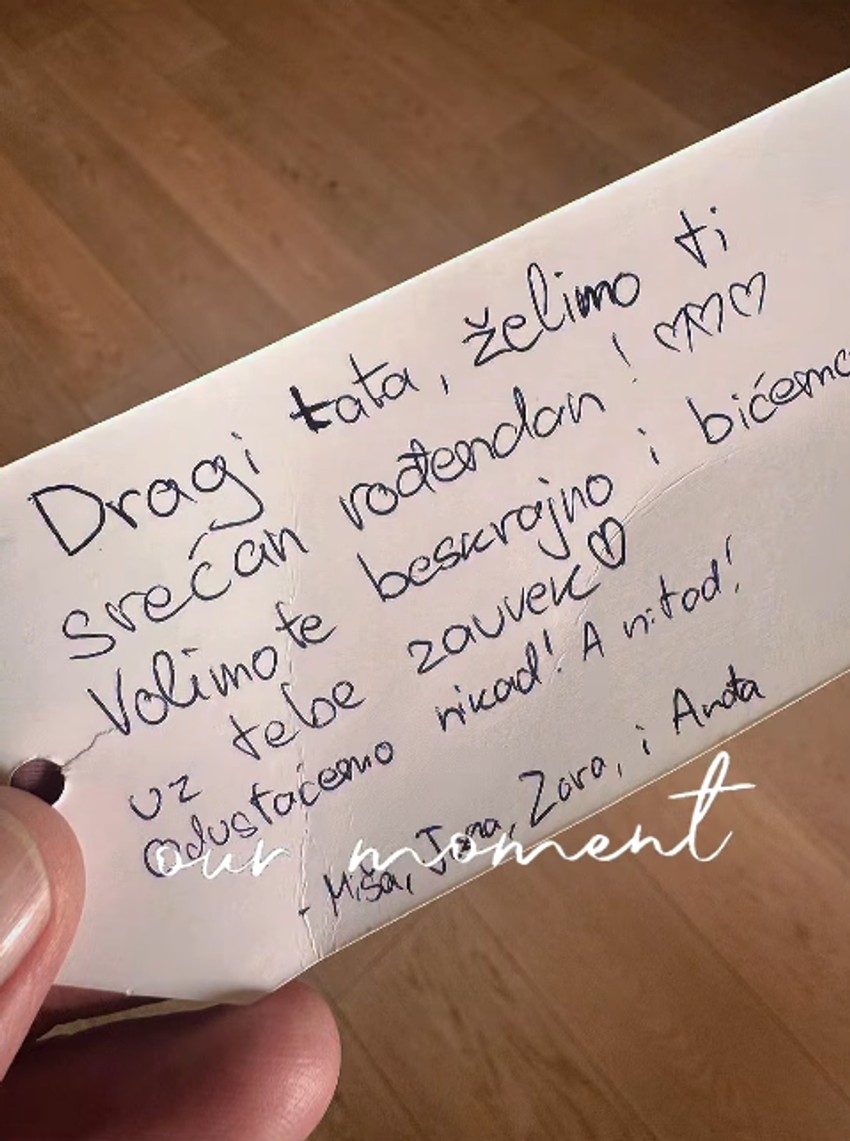 Dragi tata, želimo ti
srećan rođendan! ♡♡♡
Volimo te beskrajno i bićemo
uz tebe zauvek ♡
Odustaćemo nikad! A ni tad!
- Miša, Zara, i Anđa
our moment